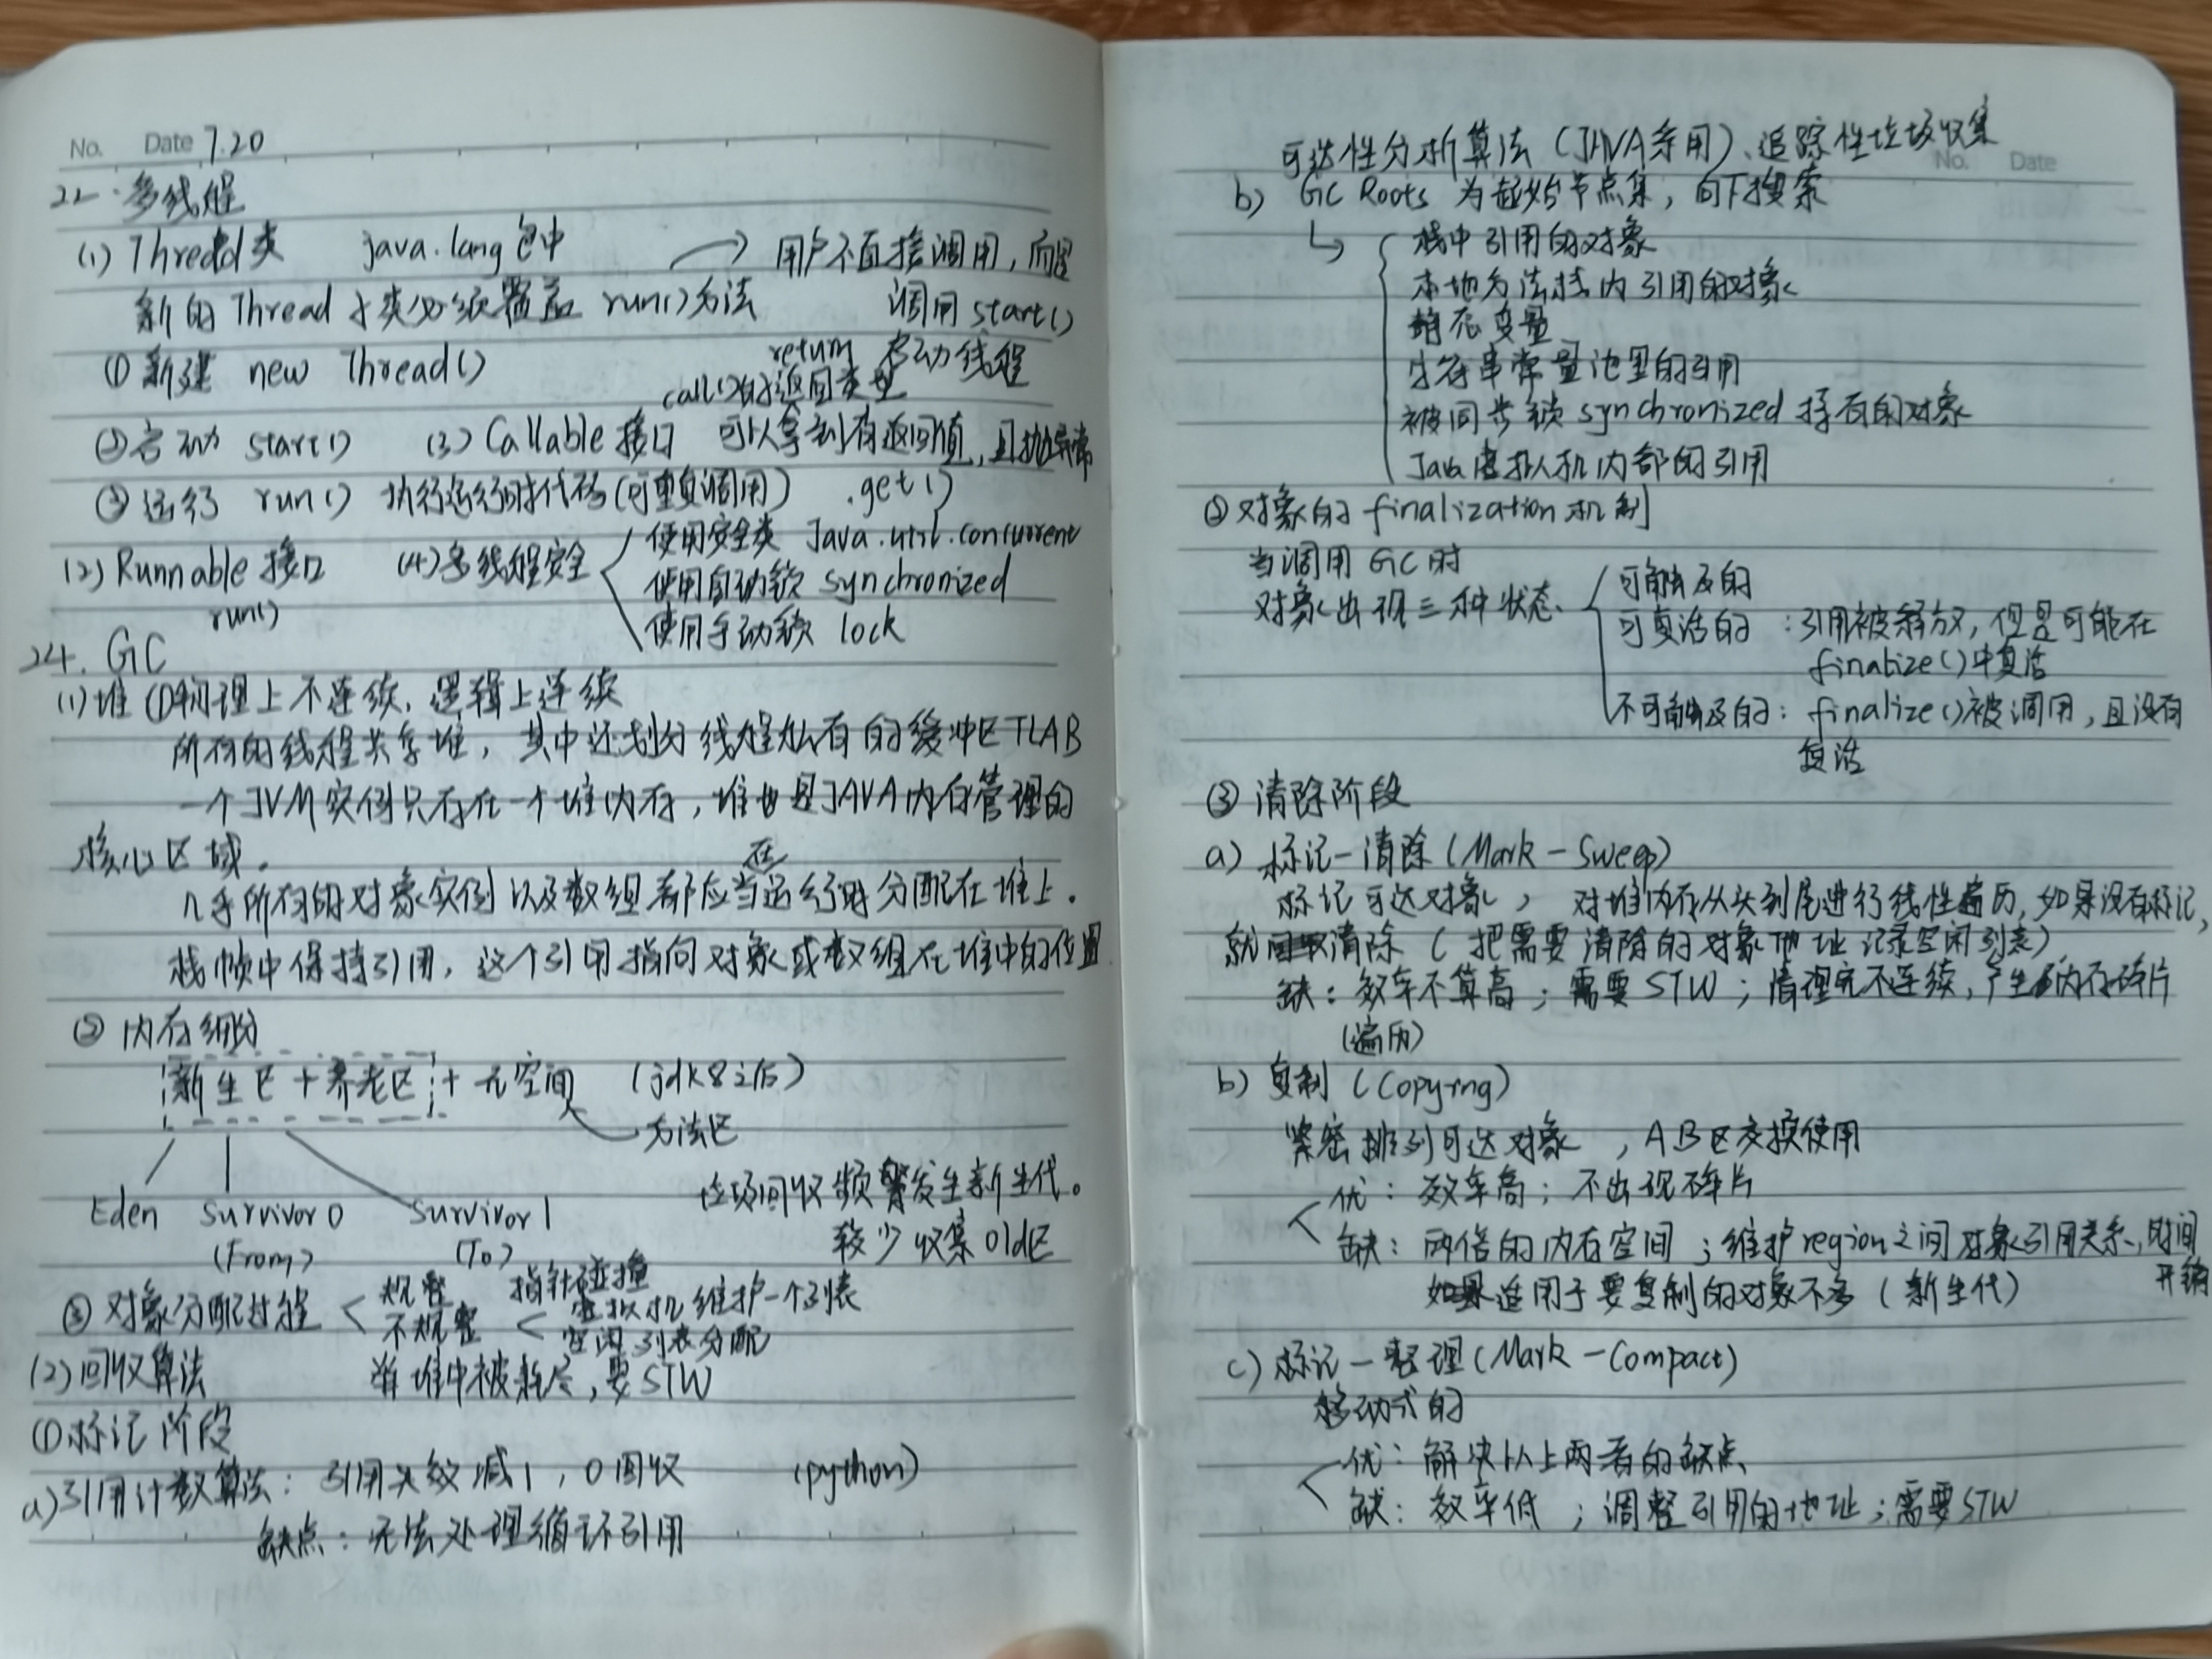 No. Date 7.20
22. 多线程
(1) Thread类 java.lang包中 → 用户不直接调用，而是
新的Thread子类必须覆盖 run()方法 调用start()
启动线程
① 新建 new Thread()
return
call()的返回类型
②启动 start() (3) Callable接口 可以拿到有返回值，且抛异常
③运行 run() 执行运行时代码(可重复调用) .get()
(2) Runnable接口 (4)多线程安全 使用安全类 Java.util.concurrent
run() 使用自动锁 synchronized
使用手动锁 lock
24. GC
(1)堆 ①物理上不连续，逻辑上连续
所有的线程共享堆，其中还划分线程私有的缓冲区TLAB
一个JVM实例只存在一个堆内存，堆也是JAVA内存管理的
核心区域。
几乎所有的对象实例以及数组都应当在运行时分配在堆上。
栈帧中保持引用，这个引用指向对象或数组在堆中的位置
② 内存细分
新生区+养老区+元空间 (jdk8之后)
方法区
Eden Survivor0 Survivor1
(From) (To)
垃圾回收频繁发生新生代。
较少收集Old区
③ 对象分配过程 规整 指针碰撞
不规整 虚拟机维护一个列表
空闲列表分配
(2)回收算法 当堆中被耗尽，要STW
①标记阶段
a)引用计数算法：引用失效减1，0回收 (python)
缺点：无法处理循环引用
No. Date
可达性分析算法(JAVA采用)、追踪性垃圾收集
b) GC Roots 为起始节点集，向下搜索
↳ 栈中引用的对象
本地方法栈内引用的对象
静态变量
字符串常量池里的引用
被同步锁synchronized持有的对象
Java虚拟机内部的引用
②对象的finalization机制
当调用GC时
对象出现三种状态 可触及的
可复活的：引用被释放，但是可能在
finalize()中复活
不可触及的：finalize()被调用，且没有
复活
③ 清除阶段
a) 标记-清除(Mark-Sweep)
标记可达对象，对堆内存从头到尾进行线性遍历，如果没有标记，
就回收清除(把需要清除的对象地址记录空闲列表)
缺：效率不算高；需要STW；清理完不连续，产生内存碎片
(遍历)
b) 复制(Copying)
紧密排列可达对象，AB区交换使用
优：效率高；不出现碎片
缺：两倍的内存空间；维护region之间对象引用关系，时间
开销
适用于要复制的对象不多(新生代)
c) 标记-整理(Mark-Compact)
移动式的
优：解决以上两者的缺点
缺：效率低；调整引用的地址；需要STW